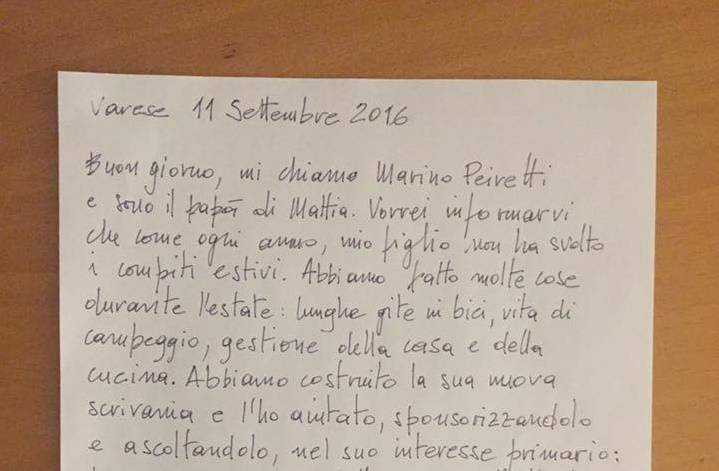 Varese 11 Settembre 2016
Buon giorno, mi chiamo Marino Peiretti
e sono il papà di Mattia. Vorrei informarvi
che come ogni anno, mio figlio non ha svolto
i compiti estivi. Abbiamo fatto molte cose
durante l'estate: lunghe gite in bici, vita di
campeggio, gestione della casa e della
cucina. Abbiamo costruito la sua nuova
scrivania e l'ho aiutato, sponsorizzandolo
e ascoltandolo, nel suo interesse primario: